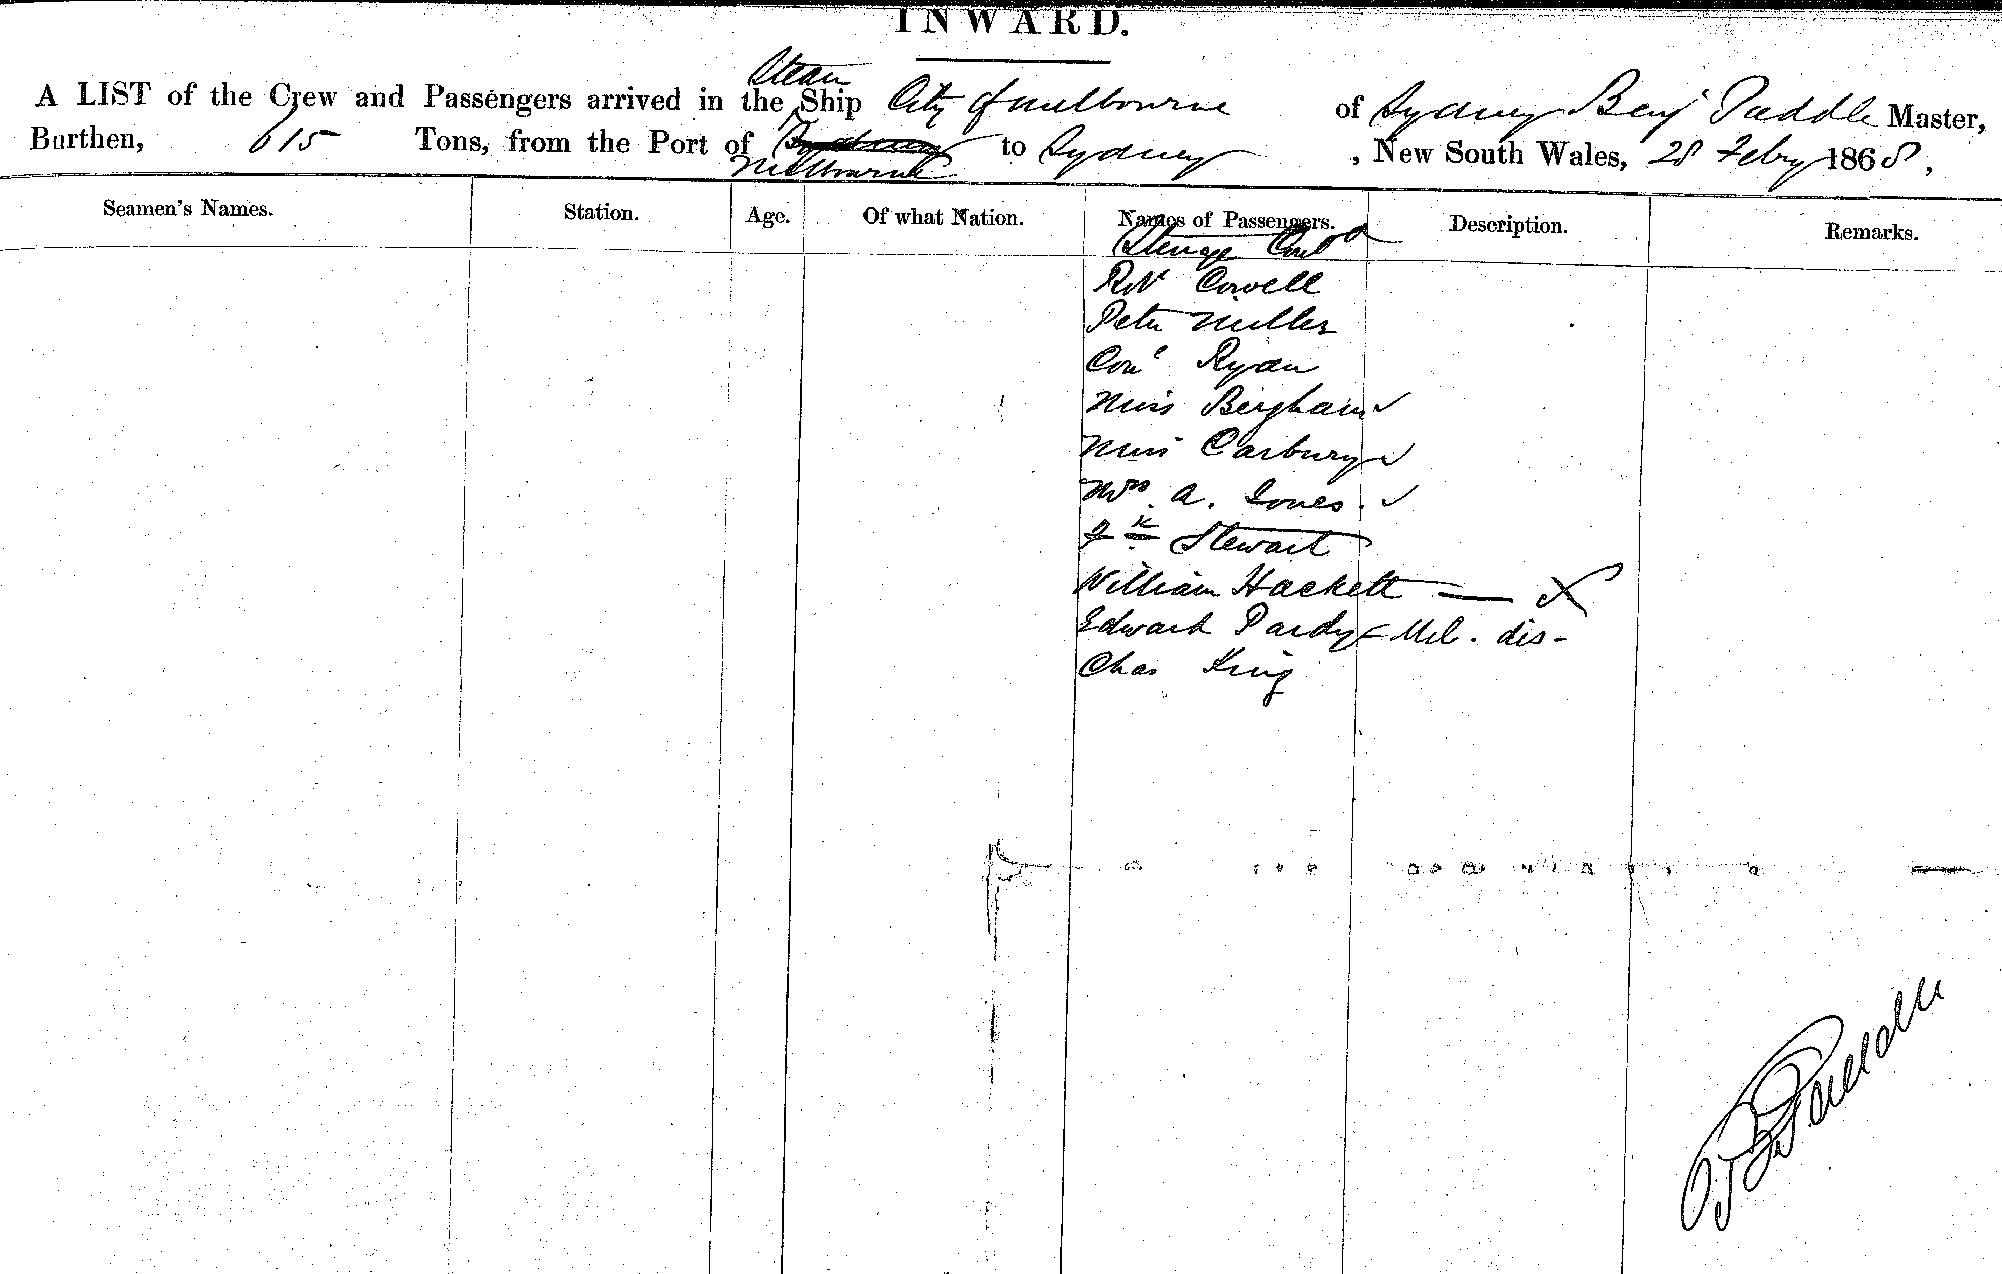 INWARD.
Steam
A LIST of the Crew and Passengers arrived in the Ship City of Melbourne of Sydney Benj Paddle Master,
Burthen, 615 Tons, from the Port of Sydney to Sydney, New South Wales, 28 Febry 1868,
Melbourne
Seamen's Names. Station. Age. Of what Nation. Names of Passengers. Description. Remarks.
Steerage Contd
Robt Cowell
Peter Miller
Cons Ryan
Miss Bergham
Miss Carbury
Mrs. A. Jones.
Fk Stewart
William Hackett — X
Edward Pardy - Mil. dis-
Chas King